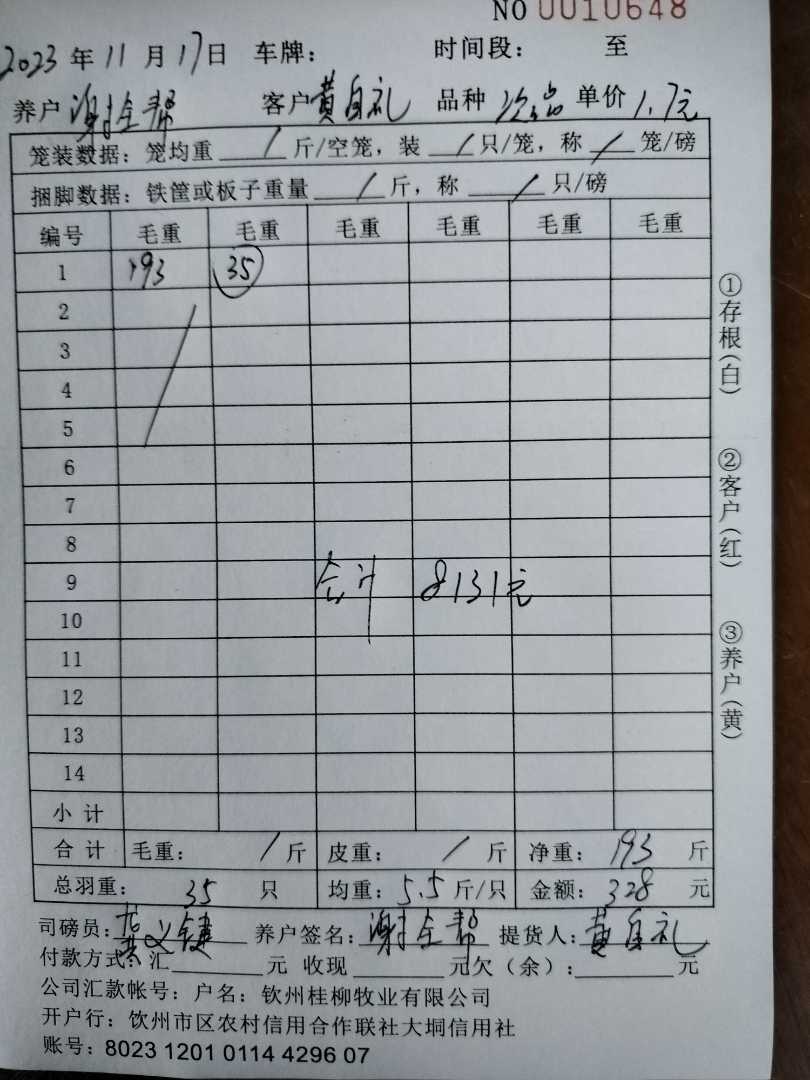 NO 0010648
2023 年 11 月 17 日 车牌: 时间段: 至
养户 谢全帮 客户 黄自礼 品种 次品 单价 1.7元
笼装数据: 笼均重 / 斤/空笼, 装 / 只/笼, 称 / 笼/磅
捆脚数据: 铁筐或板子重量 / 斤, 称 / 只/磅
编号 毛重 毛重 毛重 毛重 毛重 毛重
1 193 35
2
3
4
5
6
7
8
9 合计 8131元
10
11
12
13
14
小 计
合 计 毛重: / 斤 皮重: / 斤 净重: 193 斤
总羽重: 35 只 均重: 5.5 斤/只 金额: 328 元
司磅员: 黄义键 养户签名: 谢全帮 提货人: 黄自礼
付款方式: 汇 元 收现 元欠(余): 元
公司汇款帐号: 户名: 钦州桂柳牧业有限公司
开户行: 钦州市区农村信用合作联社大垌信用社
账号: 8023 1201 0114 4296 07
①存根(白)
②客户(红)
③养户(黄)